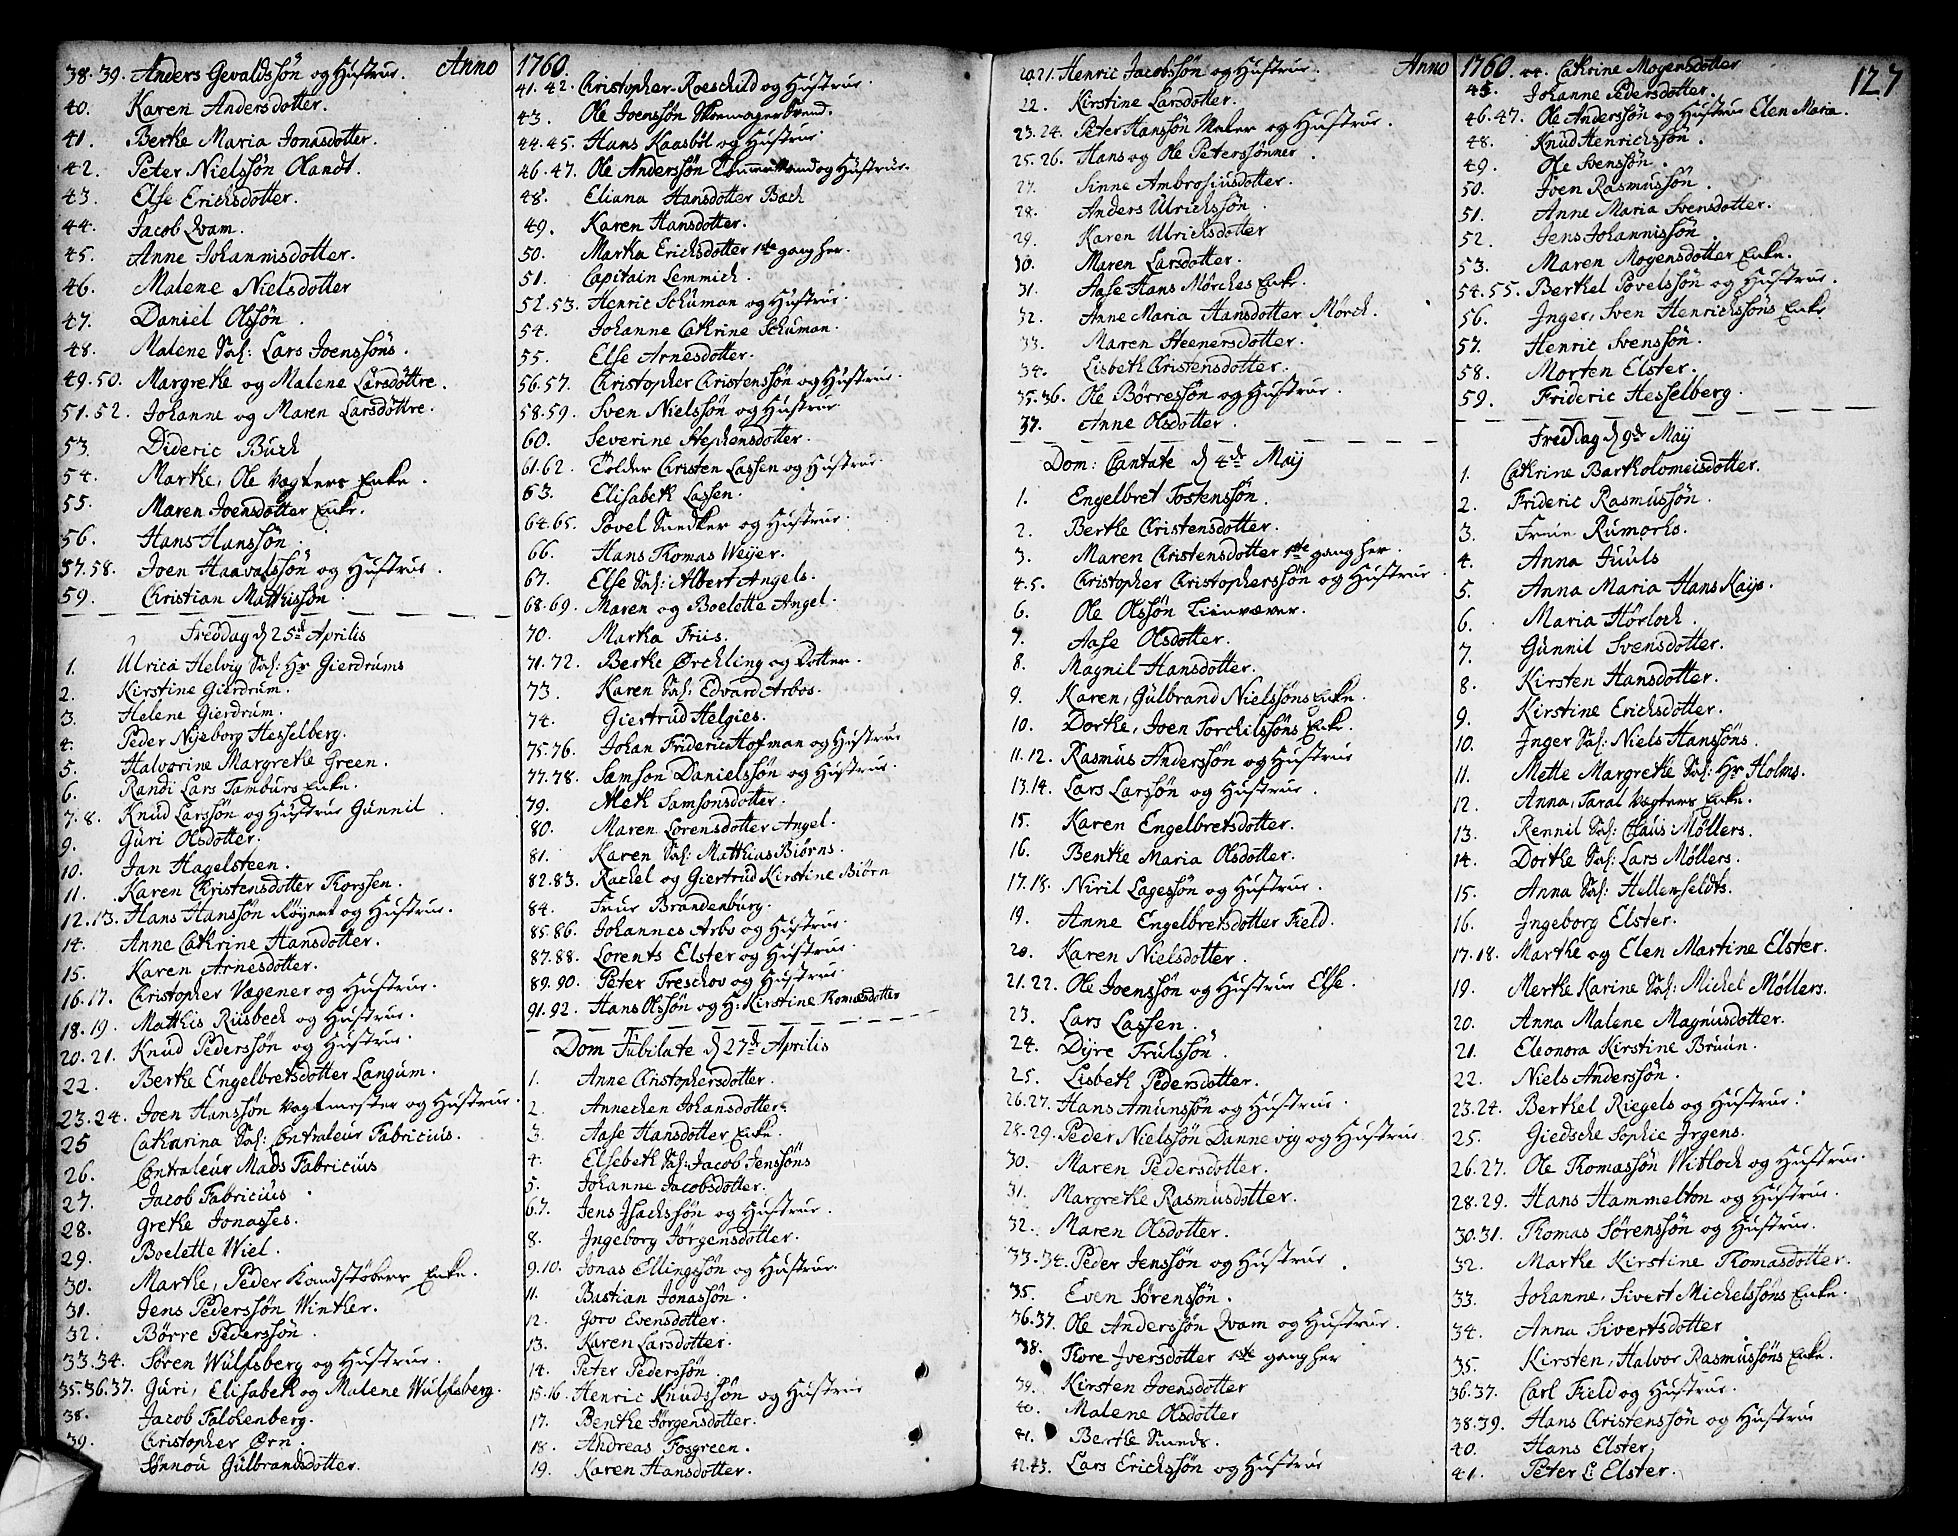 Anno 1760
38.39. Anders Gevaldssøn og Hustrue.
40. Karen Andersdotter.
41. Berthe Maria Jonasdotter.
42. Peter Nielssøn Olandt.
43. Else Erichsdotter.
44. Jacob Qvam.
45. Anne Johannisdotter.
46. Malene Nielsdotter
47. Daniel Olssøn.
48. Malene Sal: Lars Joenssøns.
49.50. Margrethe og Malene Larsdøttre.
51.52. Johanne og Maren Larsdøttre.
53. Dideric Buch
54. Marthe, Ole Vægters Enke.
55. Maren Joensdotter Enke.
56. Hans Hanssøn.
57.58. Joen Haavalssøn og Hustrue.
59. Christian Matthissøn
Freddag d 25de Aprilis
1. Ulrica Helvig Sal: Hr Gierdrums
2. Kirstine Gierdrum.
3. Helene Gierdrum.
4. Peder Nyeborg Hesselberg.
5. Halvorine Margrethe Green.
6. Randi Lars Tamburs Enke.
7.8. Knud Larssøn og Hustrue Gunnil
9. Guri Olsdotter.
10. Jan Hagelsteen.
11. Karen Christensdotter Thorssen.
12.13. Hans Hanssøn Røyert og Hustrue.
14. Anne Cathrine Hansdotter.
15. Karen Arnesdotter.
16.17. Christopher Vægener og Hustrue.
18.19. Matthis Riisbech og Hustrue.
20.21. Knud Pederssøn og Hustrue.
22. Berthe Engelbretsdotter Langum.
23.24. Joen Hanssøn Vagtmester og Hustrue.
25 Catharina Sal: Contraleur Fabricius.
26. Contraleur Mads Fabricius
27. Jacob Fabricius.
28. Grethe Jonasses.
29. Boelette Wiel.
30. Marthe, Peder Kandstøbers Enke.
31. Jens Pederssøn Winther.
32. Børre Pederssøn.
33.34. Søren Wulfsberg og Hustrue.
35.36.37. Guri, Elisabeth og Malene Wulfsberg.
38. Jacob Falchenberg.
39. Christopher Ørn.
Sønnou Gulbrandsdotter.
41.42. Christopher Roeschild og Hustrue
43. Ole Joenssøn Skomagersvend.
44.45. Hans Kaasbøl og Hustrue
46.47. Ole Anderssøn Tømmermand og Hustrue.
48. Eliana Hansdotter Bach
49. Karen Hansdotter.
50. Martha Erichsdotter 1ste gang her.
51. Capitain Lemmich.
52.53. Henric Schuman og Hustrue.
54. Johanne Cathrine Schuman.
55. Else Arnesdotter.
56.57. Christopher Christenssøn og Hustrue.
58.59. Sven Nielssøn og Hustrue
60. Severine Stephensdotter.
61.62. Tolder Christen Lassen og Hustrue.
63. Elisabeth Lassen.
64.65. Povel Snedker og Hustrue.
66. Hans Thomas Weyer.
67. Else Sal: Albert Angels.
68.69. Maren og Boelette Angel.
70. Martha Friis.
71.72. Berthe Ørchling og Dotter.
73. Karen Sal: Edvard Arbos.
74. Giertrud Helgies.
75.76. Johan Frideric Hofman og Hustrue
77.78. Samson Danielssøn og Hustrue.
79. Aleth Samsonsdotter.
80. Maren Lorensdotter Angel.
81. Karen Sal: Matthias Biørns.
82.83. Rachel og Giertrud Kirstine Biørn
84. Frue Brandenburg.
85.86. Johannes Arbo og Hustrue.
87.88. Lorents Elster og Hustrue.
89.90. Peter Treschov og Hustrue.
91.92. Hans Olssøn og H: Kirstine Thomasdotter
Dom Jubilate d 27de Aprilis
1. Anne Christophersdotter.
2. Annechen Johansdotter.
3. Aase Hansdotter Enke.
4. Elsebeth Sal: Jacob Jenssøns
5. Johanne Jacobsdotter.
6.7. Jens Isachssøn og Hustrue.
8. Ingeborg Jørgensdotter.
9.10. Jonas Ellingssøn og Hustrue.
11. Bastian Jonassøn.
12. Goro Evensdotter.
13. Karen Larsdotter.
14. Peter Pederssøn.
15.16. Henric Knudssøn og Hustrue
17. Benthe Jørgensdotter.
18. Andreas Fosgreen.
19. Karen Hansdotter.
Anno 1760. 127
20.21. Henric Jacobssøn og Hustrue.
22. Kirstine Larsdotter.
23.24. Peter Hanssøn Maler og Hustrue.
25.26. Hans og Ole Peterssønner.
27. Sinne Ambrosiusdotter.
28. Anders Ulrichssøn.
29. Karen Ulrichsdotter
30. Maren Larsdotter.
31. Aase Hans Mørches Enke.
32. Anne Maria Hansdotter Mørch.
33. Maren Steenersdotter.
34. Lisbeth Christensdotter.
35.36. Ole Børressøn og Hustrue.
37. Anne Olsdotter.
Dom: Cantate d 4de Maij
1. Engelbret Tostenssøn.
2. Berthe Christensdotter.
3. Maren Christensdotter 1ste gang her.
4.5. Christopher Christopherssøn og Hustrue
6. Ole Olssøn Linnvæver.
7. Aase Olsdotter.
8. Magnil Hansdotter.
9. Karen, Gulbrand Nielssøns Enke.
10. Dorthe, Joen Torchilssøns Enke.
11.12. Rasmus Anderssøn og Hustrue
13.14. Lars Larssøn og Hustrue.
15. Karen Engelbretsdotter.
16. Benthe Maria Olsdotter.
17.18. Niril Lagessøn og Hustrue.
19. Anne Engelbretsdotter Field.
20. Karen Nielsdotter.
21.22. Ole Joenssøn og Hustrue Else.
23. Lars Lassen.
24. Dyre Trulssøn.
25. Lisbeth Pedersdotter.
26.27. Hans Amunssøn og Hustrue.
28.29. Peder Nielssøn Dannevig og Hustrue
30. Maren Pedersdotter.
31. Margrethe Rasmusdotter.
32. Maren Olsdotter.
33.34. Peder Jenssøn og Hustrue.
35. Even Sørenssøn.
36.37. Ole Anderssøn Qvam og Hustrue.
38. Thore Iversdotter 1ste gang her
39. Kirsten Joensdotter
40. Malene Olsdotter
41. Berthe Smeds.
42.43. Lars Erichssøn og Hustrue
44. Cathrine Mogensdotter
45. Johanne Pedersdotter.
46.47. Ole Anderssøn og Hustrue Elen Maria.
48. Knud Henrichssøn.
49. Ole Svenssøn.
50. Joen Rasmussøn.
51. Anne Maria Svensdotter.
52. Jens Johannissøn.
53. Maren Mogensdotter Enke.
54.55. Berthel Povelssøn og Hustrue.
56. Inger, Sven Henrichssøns Enke
57. Henric Svenssøn.
58. Morten Elster.
59. Frideric Hesselberg.
Freddag d 9de Maij
1. Cathrine Bartholomeisdotter.
2. Frideric Rasmussøn.
3. Frue Rumohrs.
4. Anna Juuls
5. Anna Maria Hans Kays.
6. Maria Hørloch.
7. Gunnil Svensdotter.
8. Kirsten Hansdotter.
9. Kirstine Erichsdotter.
10. Inger Sal: Niels Hanssøns.
11. Mette Margrethe Sal: Hr Holms.
12. Anna, Taral Vægters Enke.
13. Rennil Sal: Claus Møllers.
14. Dorthe Sal: Lars Møllers.
15. Anna Sal: Hellerfeldts.
16. Ingeborg Elster.
17.18. Marthe og Elen Martine Elster.
19. Merthe Karine Sal: Michel Møllers.
20. Anna Malene Magnusdotter.
21. Eleonora Kirstine Bruun.
22. Niels Anderssøn.
23.24. Berthel Riegels og Hustrue.
25. Giedsche Sophie Irgens.
26.27. Ole Thomassøn Witloch og Hustrue.
28.29. Hans Hammelton og Hustrue.
30.31. Thomas Sørenssøn og Hustrue.
32. Marthe Kirstine Thomasdotter.
33. Johanne, Sivert Michelssøns Enke.
34. Anna Sivertsdotter
35. Kirsten, Halvor Rasmussøns Enke.
36.37. Carl Field og Hustrue.
38.39. Hans Christenssøn og Hustrue
40. Hans Elster.
41. Peter L Elster.